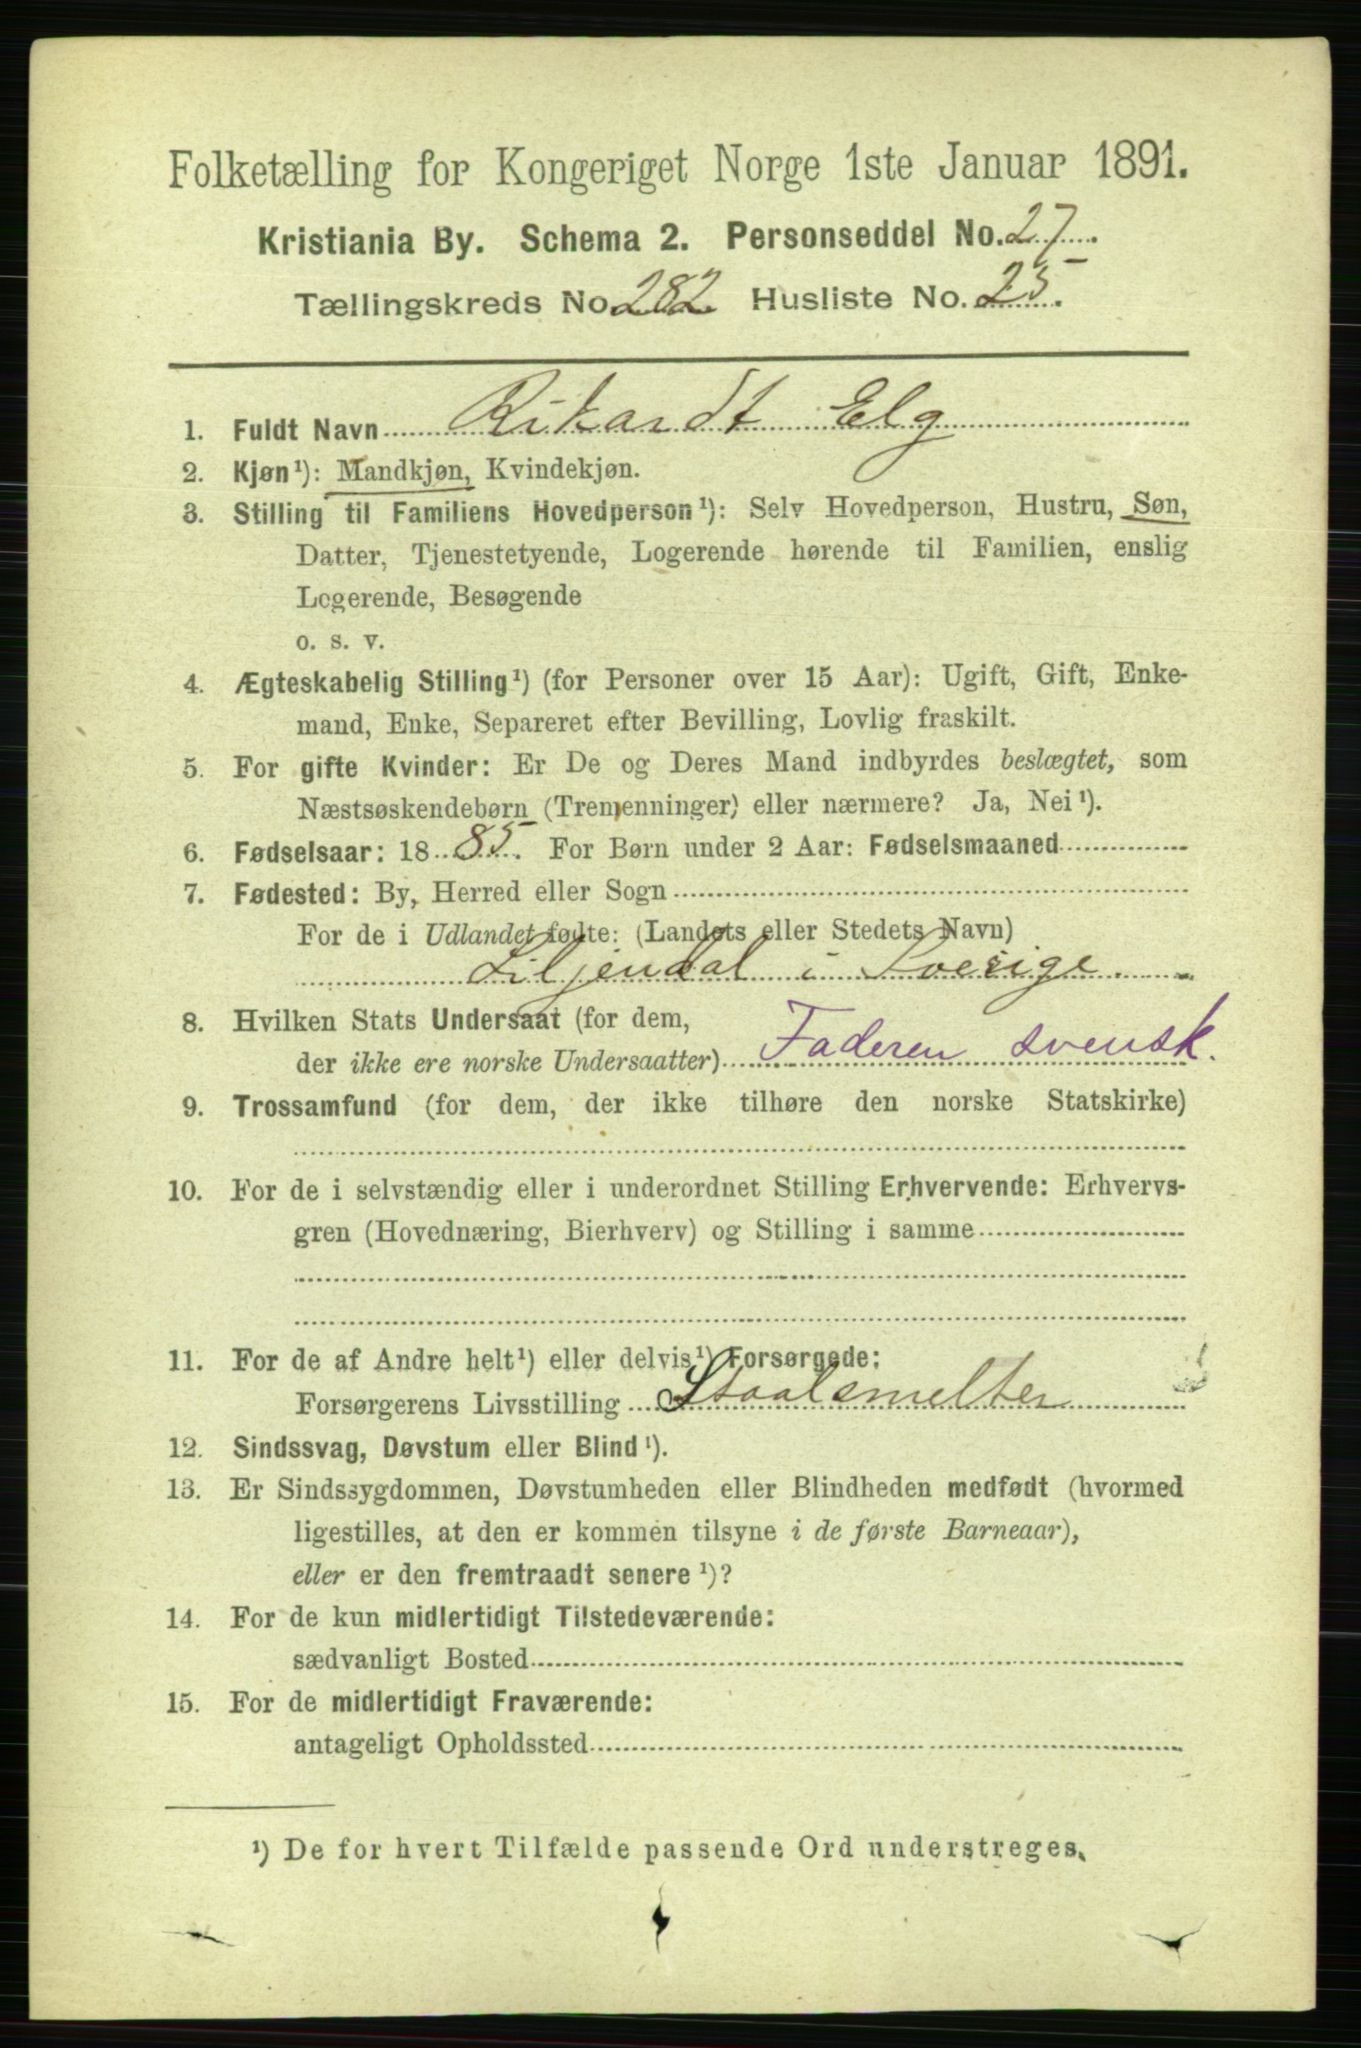 Folketælling for Kongeriget Norge 1ste Januar 1891.
Kristiania By. Schema 2. Personseddel No. 27.
Tællingskreds No. 282 Husliste No. 25.
1. Fuldt Navn Rikardt Elg
2. Kjøn¹): Mandkjøn, Kvindekjøn.
3. Stilling til Familiens Hovedperson¹): Selv Hovedperson, Hustru, Søn,
Datter, Tjenestetyende, Logerende hørende til Familien, enslig
Logerende, Besøgende
o. s. v.
4. Ægteskabelig Stilling¹) (for Personer over 15 Aar): Ugift, Gift, Enke-
mand, Enke, Separeret efter Bevilling, Lovlig fraskilt.
5. For gifte Kvinder: Er De og Deres Mand indbyrdes beslægtet, som
Næstsøskendebørn (Tremenninger) eller nærmere? Ja, Nei¹).
6. Fødselsaar: 1885. For Børn under 2 Aar: Fødselsmaaned
7. Fødested: By, Herred eller Sogn
For de i Udlandet fødte: (Landets eller Stedets Navn)
Liljendal i Sverige.
8. Hvilken Stats Undersaat (for dem,
der ikke ere norske Undersaatter) Faderen svensk.
9. Trossamfund (for dem, der ikke tilhøre den norske Statskirke)
10. For de i selvstændig eller i underordnet Stilling Erhvervende: Erhvervs-
gren (Hovednæring, Bierhverv) og Stilling i samme
11. For de af Andre helt¹) eller delvis¹) Forsørgede:
Forsørgerens Livsstilling Staalsmelter
12. Sindssvag, Døvstum eller Blind¹).
13. Er Sindssygdommen, Døvstumheden eller Blindheden medfødt (hvormed
ligestilles, at den er kommen tilsyne i de første Barneaar),
eller er den fremtraadt senere¹)?
14. For de kun midlertidigt Tilstedeværende:
sædvanligt Bosted
15. For de midlertidigt Fraværende:
antageligt Opholdssted
¹) De for hvert Tilfælde passende Ord understreges.